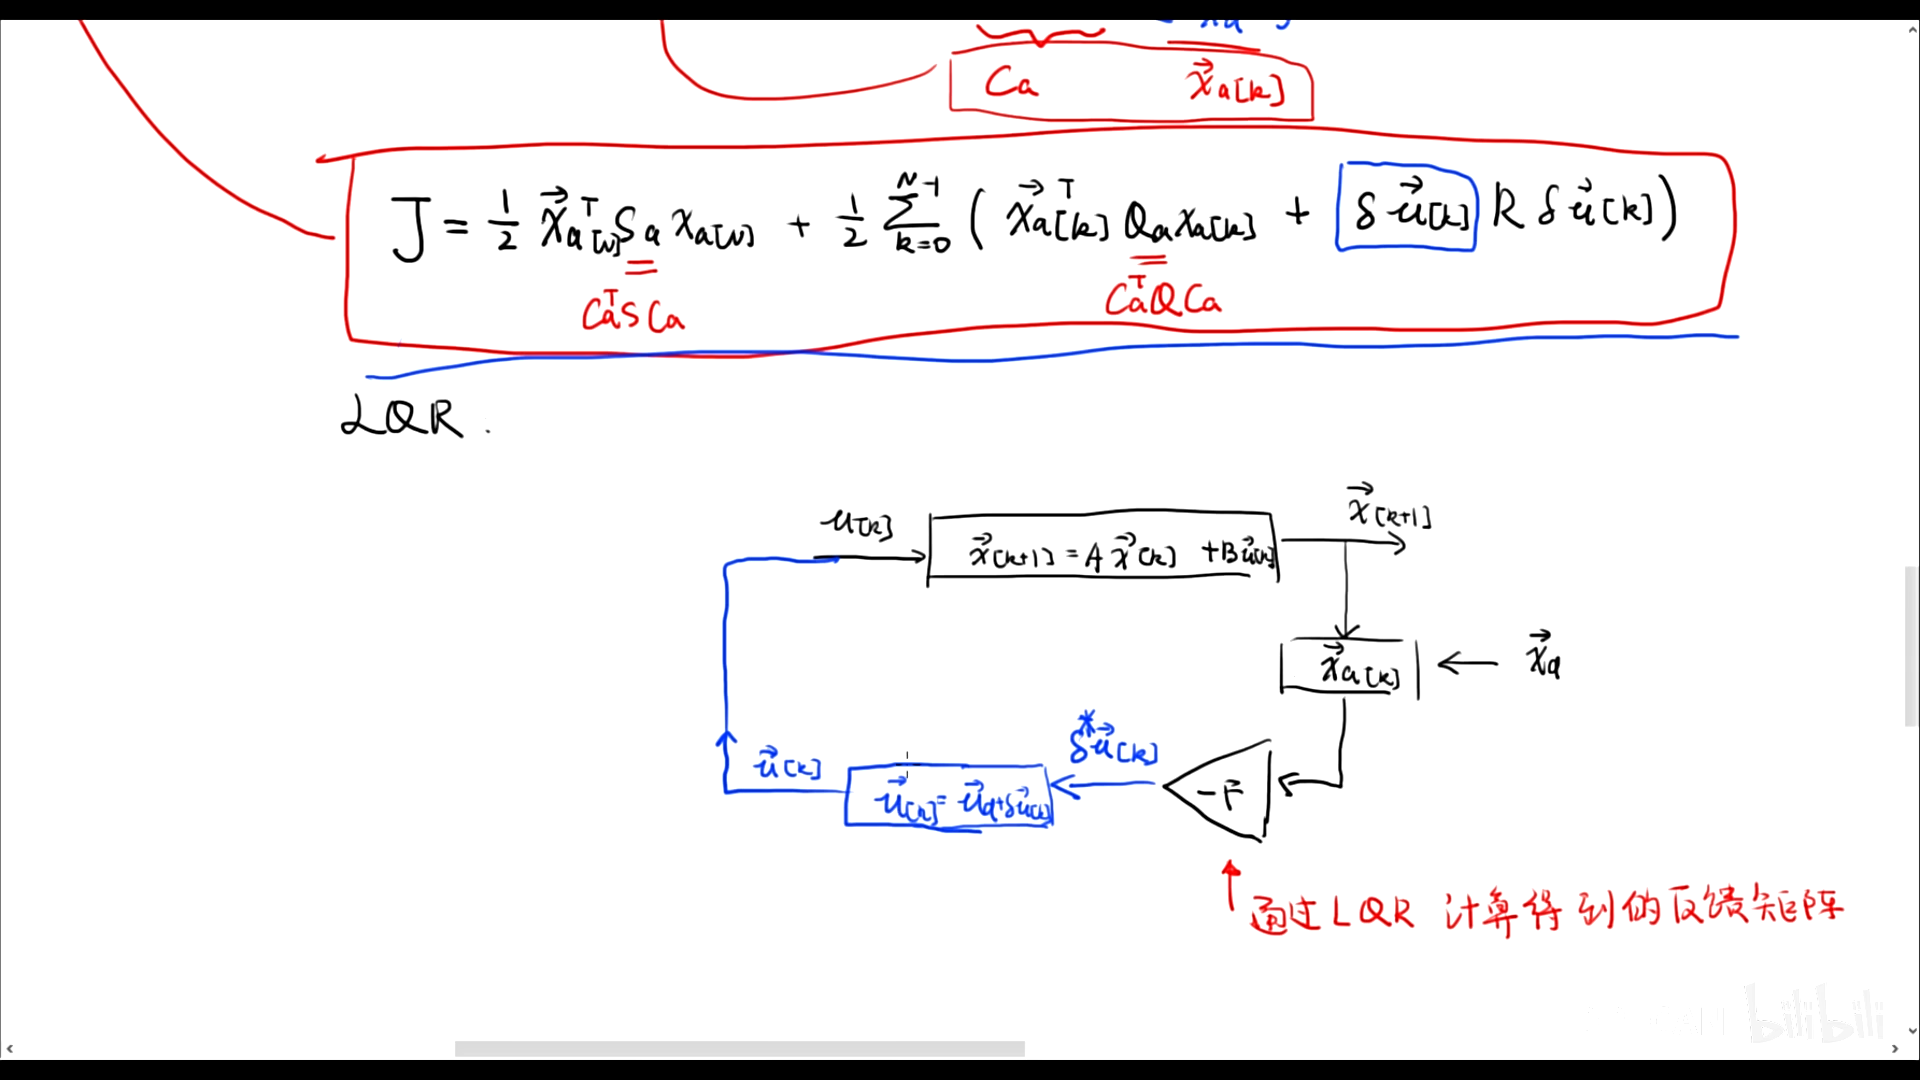 Ca x⃗a[k]
J = 1/2 x⃗a[N]ᵀ Sa xa[N] + 1/2 Σ_{k=0}^{N-1} ( x⃗a[k]ᵀ Qa xa[k] + δu⃗[k] R δu⃗[k] )
CaᵀSCa CaᵀQCa
LQR .
u[k] x⃗[k+1] = A x⃗[k] + Bu⃗[k] x⃗[k+1]
x⃗a[k] x⃗d
u⃗[k] u⃗[k] = u⃗d+δu⃗[k] δ*u⃗[k] -F
通过LQR 计算得到的反馈矩阵
bilibili